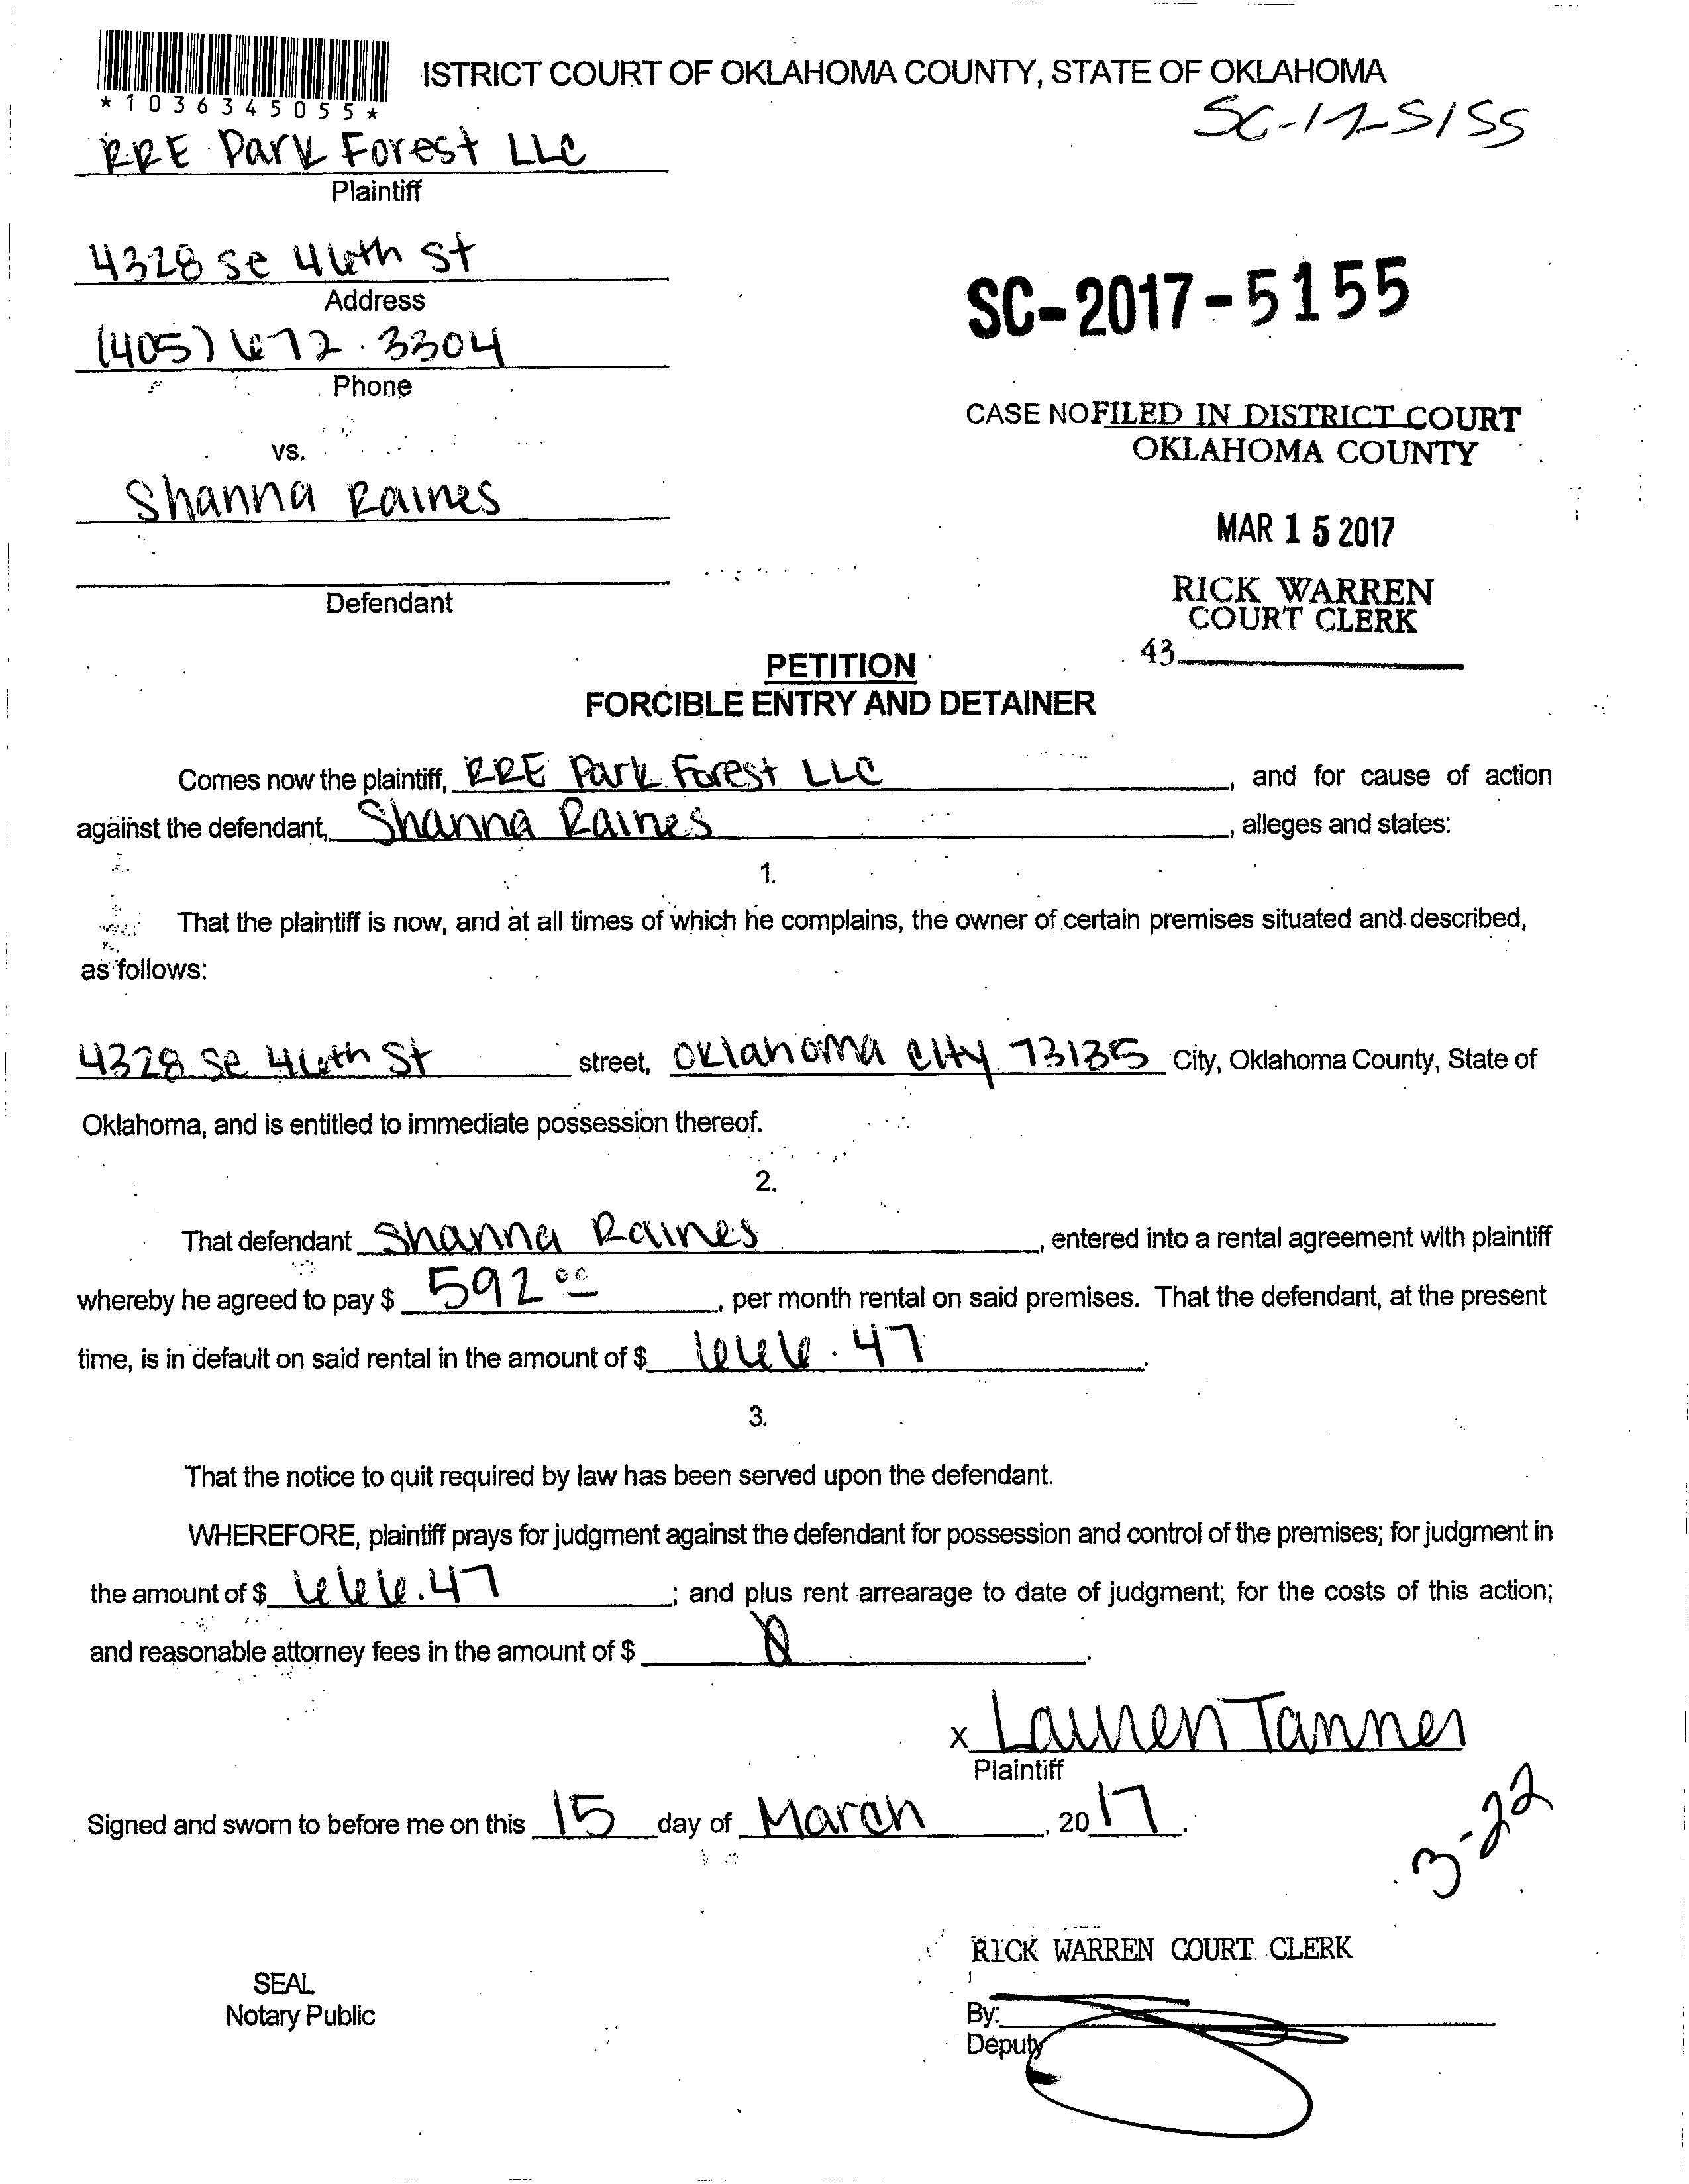 ISTRICT COURT OF OKLAHOMA COUNTY, STATE OF OKLAHOMA
*1036345055*
SC-17-5155
RRE Park Forest LLC
Plaintiff
4328 SE 46th St
Address
SC-2017-5155
(405) 672.3304
Phone
CASE NO FILED IN DISTRICT COURT
OKLAHOMA COUNTY
vs.
Shanna Raines
MAR 15 2017
Defendant
RICK WARREN
COURT CLERK
43
PETITION
FORCIBLE ENTRY AND DETAINER
Comes now the plaintiff, RRE Park Forest LLC, and for cause of action
against the defendant, Shanna Raines, alleges and states:
1.
That the plaintiff is now, and at all times of which he complains, the owner of certain premises situated and described,
as follows:
4328 SE 46th St street, Oklahoma City 73135 City, Oklahoma County, State of
Oklahoma, and is entitled to immediate possession thereof.
2.
That defendant Shanna Raines, entered into a rental agreement with plaintiff
whereby he agreed to pay $ 592 00, per month rental on said premises. That the defendant, at the present
time, is in default on said rental in the amount of $ 666.47.
3.
That the notice to quit required by law has been served upon the defendant.
WHEREFORE, plaintiff prays for judgment against the defendant for possession and control of the premises; for judgment in
the amount of $ 666.47; and plus rent arrearage to date of judgment; for the costs of this action;
and reasonable attorney fees in the amount of $ 0.
x Lauren Tanner
Plaintiff
Signed and sworn to before me on this 15 day of March, 2017.
3-22
RICK WARREN COURT CLERK
SEAL
Notary Public
By:
Deputy